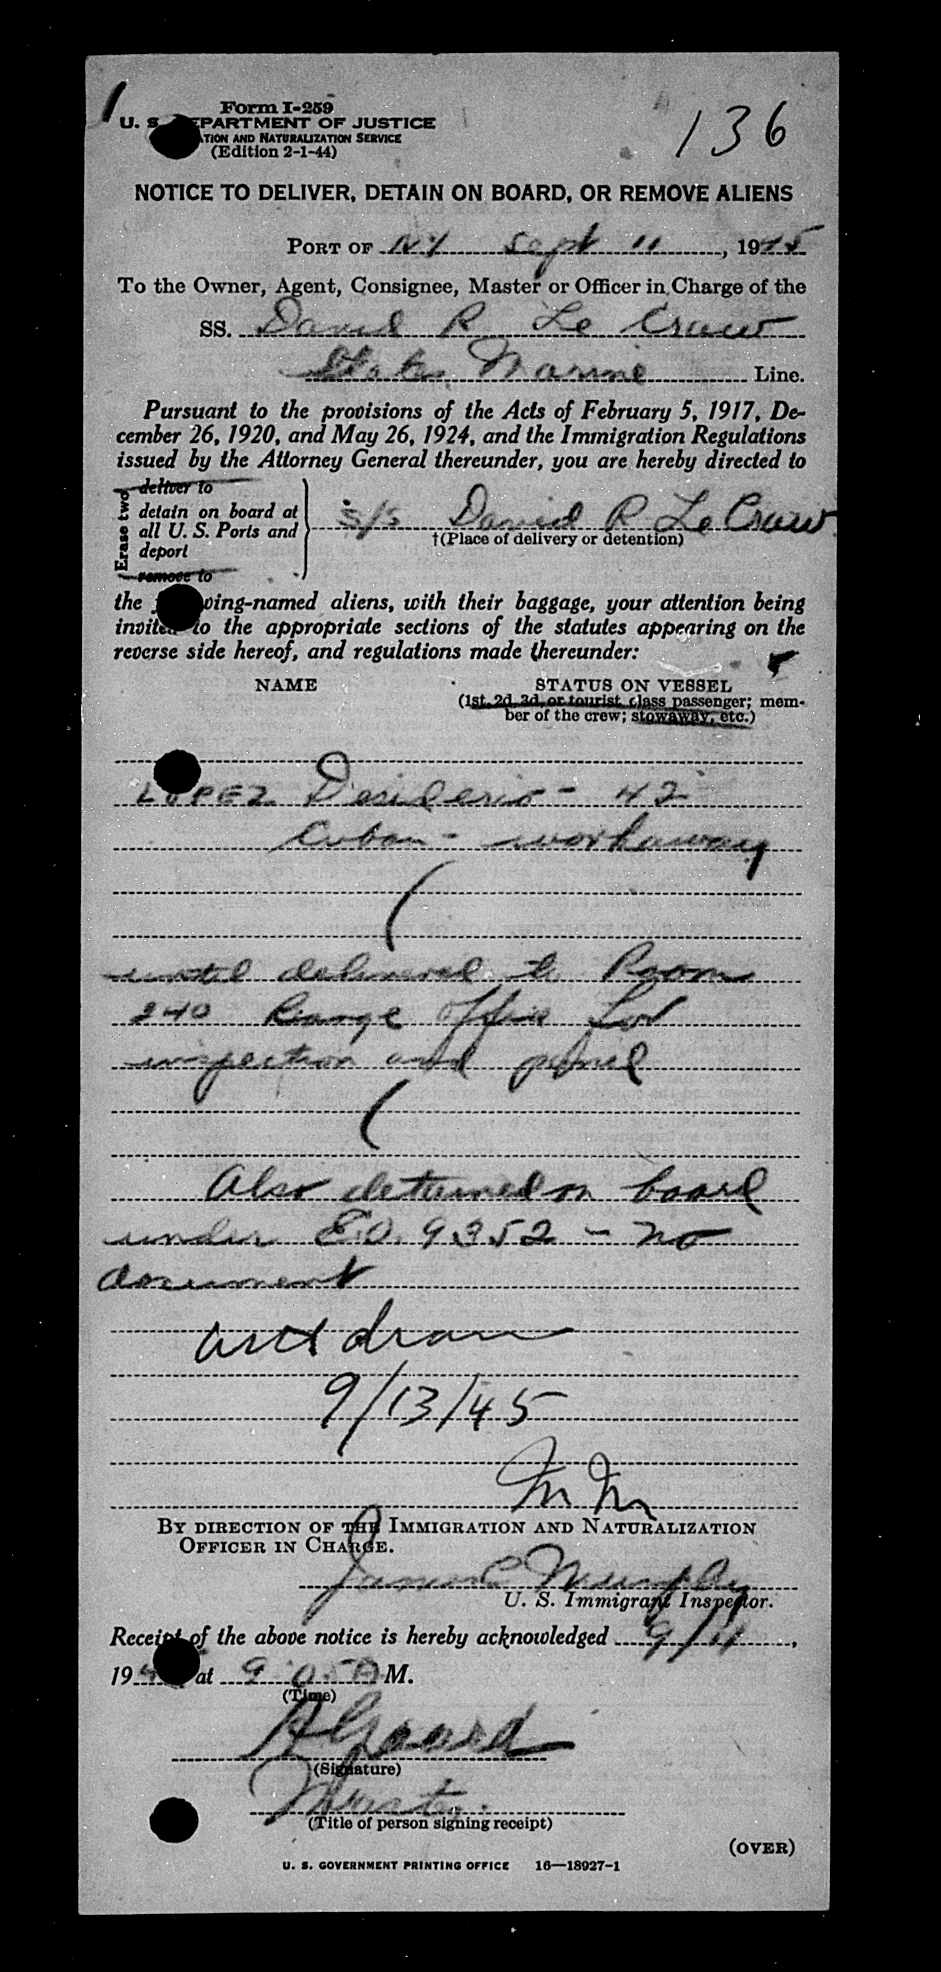 1
136
Form I-259
U. S. DEPARTMENT OF JUSTICE
IMMIGRATION AND NATURALIZATION SERVICE
(Edition 2-1-44)
NOTICE TO DELIVER, DETAIN ON BOARD, OR REMOVE ALIENS
PORT OF NY Sept 11, 1945
To the Owner, Agent, Consignee, Master or Officer in Charge of the
SS. David R Le Craw
States Marine Line.
Pursuant to the provisions of the Acts of February 5, 1917, De-
cember 26, 1920, and May 26, 1924, and the Immigration Regulations
issued by the Attorney General thereunder, you are hereby directed to
Erase two
deliver to
detain on board at
all U. S. Ports and
deport
remove to
S/S David R Le Craw
†(Place of delivery or detention)
the following-named aliens, with their baggage, your attention being
invited to the appropriate sections of the statutes appearing on the
reverse side hereof, and regulations made thereunder:
NAME STATUS ON VESSEL
(1st, 2d, 3d, or tourist class passenger; mem-
ber of the crew; stowaway, etc.)
LOPEZ Desiderio - 42
Cuban - workaway
until delivered to Room
240 Barge Office for
inspection and
Also detained on board
under E.O. 9352 - no
document
9/13/45
BY DIRECTION OF THE IMMIGRATION AND NATURALIZATION
OFFICER IN CHARGE.
James C Murphy
U. S. Immigrant Inspector.
Receipt of the above notice is hereby acknowledged 9/11,
194 at 9:05 A M.
(Time)
(Signature)
Master
(Title of person signing receipt)
(OVER)
U. S. GOVERNMENT PRINTING OFFICE 16—18927-1